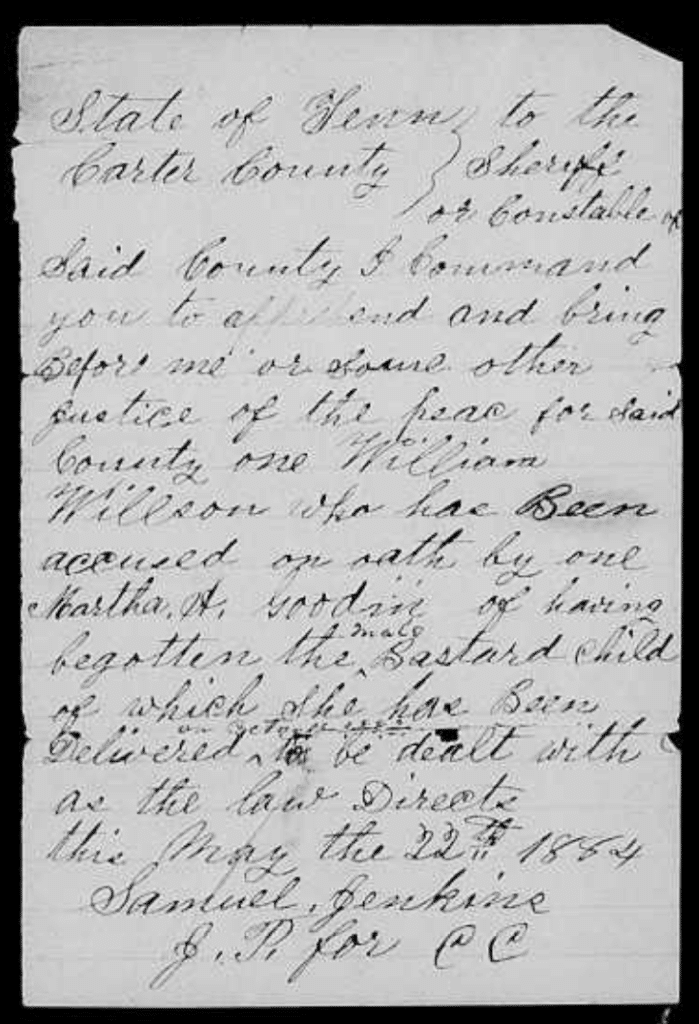 State of Tenn } to the
Carter County } Sheriff
or Constable of
Said County I Command
you to apprehend and bring
Before me or some other
justice of the peac for said
County one William
Willson who has Been
accused on oath by one
Martha. A. Goodin of having
begotten the male Bastard child
of which she has Been
on
Delivered to be dealt with
as the law Directs
this May the 22th 1884
Samuel. Jenkins
J. P. for C C